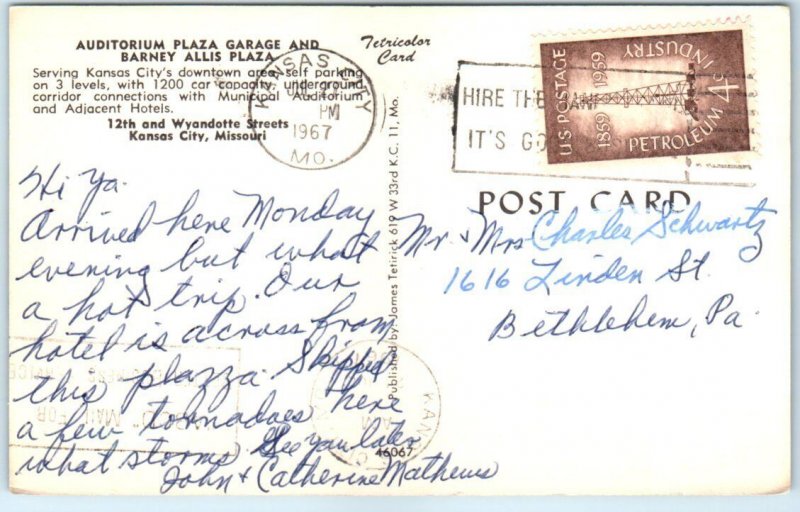 AUDITORIUM PLAZA GARAGE AND
BARNEY ALLIS PLAZA
Serving Kansas City's downtown area, self parking
on 3 levels, with 1200 car capacity, underground
corridor connections with Municipal Auditorium
and Adjacent Hotels.
12th and Wyandotte Streets
Kansas City, Missouri
Tetricolor
Card
KANSAS CITY
PM
1967
MO.
HIRE THE
IT'S GO
U.S. POSTAGE
1859 1959
PETROLEUM INDUSTRY
4¢
POST CARD
Hi Ya.
Arrived here Monday
evening but what
a hot trip. Our
hotel is across from
this plazza. Skipped
a few tornadoes here
what storms. See you later
John + Catherine Mathews
Published by: James Tetirick 619 W 33rd K.C. 11, Mo.
46067
Mr + Mrs Charles Schwartz
1616 Linden St.
Bethlehem, Pa.
KANSAS
MAIL FOR